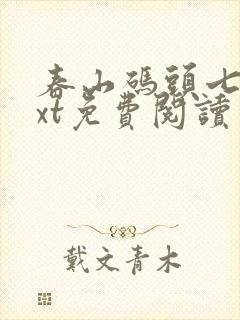 春山碼頭七
xt免費閱讀
戴文青木